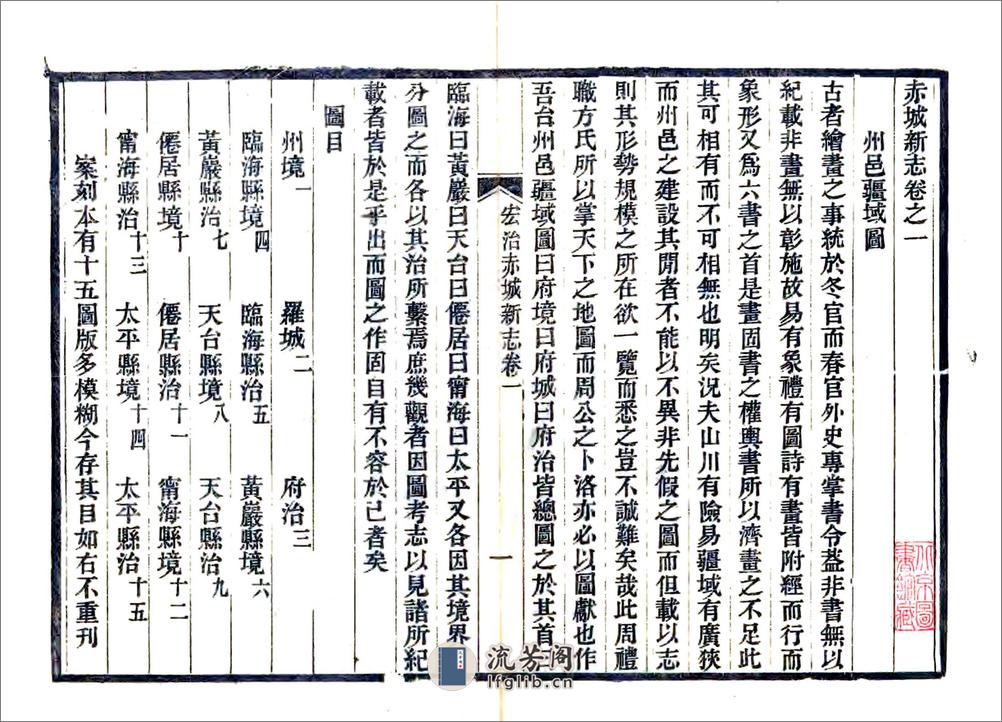 赤城新志卷之一
州邑疆域圖
古者繪畫之事統於冬官而春官外史專掌書令葢非書無以
紀載非畫無以彰施故易有象禮有圖詩有畫皆附經而行而
象形又爲六書之首是畫固書之權輿書所以濟畫之不足此
其可相有而不可相無也明矣況夫山川有險易疆域有廣狹
而州邑之建設其閒者不能以不異非先假之圖而但載以志
則其形勢規模之所在欲一覽而悉之豈不誠難矣哉此周禮
職方氏所以掌天下之地圖而周公之卜洛亦必以圖獻也作
吾台州邑疆域圖曰府境曰府城曰府治皆總圖之於其首
宏治赤城新志卷一
一
臨海曰黃巖曰天台曰僊居曰甯海曰太平又各因其境界
分圖之而各以其治所繫焉庶幾觀者因圖考志以見諸所紀
載者皆於是乎出而圖之作固自有不容於已者矣
圖目
州境一 羅城二 府治三
臨海縣境四 臨海縣治五 黃巖縣境六
黃巖縣治七 天台縣境八 天台縣治九
僊居縣境十 僊居縣治十一 甯海縣境十二
甯海縣治十三 太平縣境十四 太平縣治十五
案刻本有十五圖版多模糊今存其目如右不重刊
流芳阁
lfglib.cn